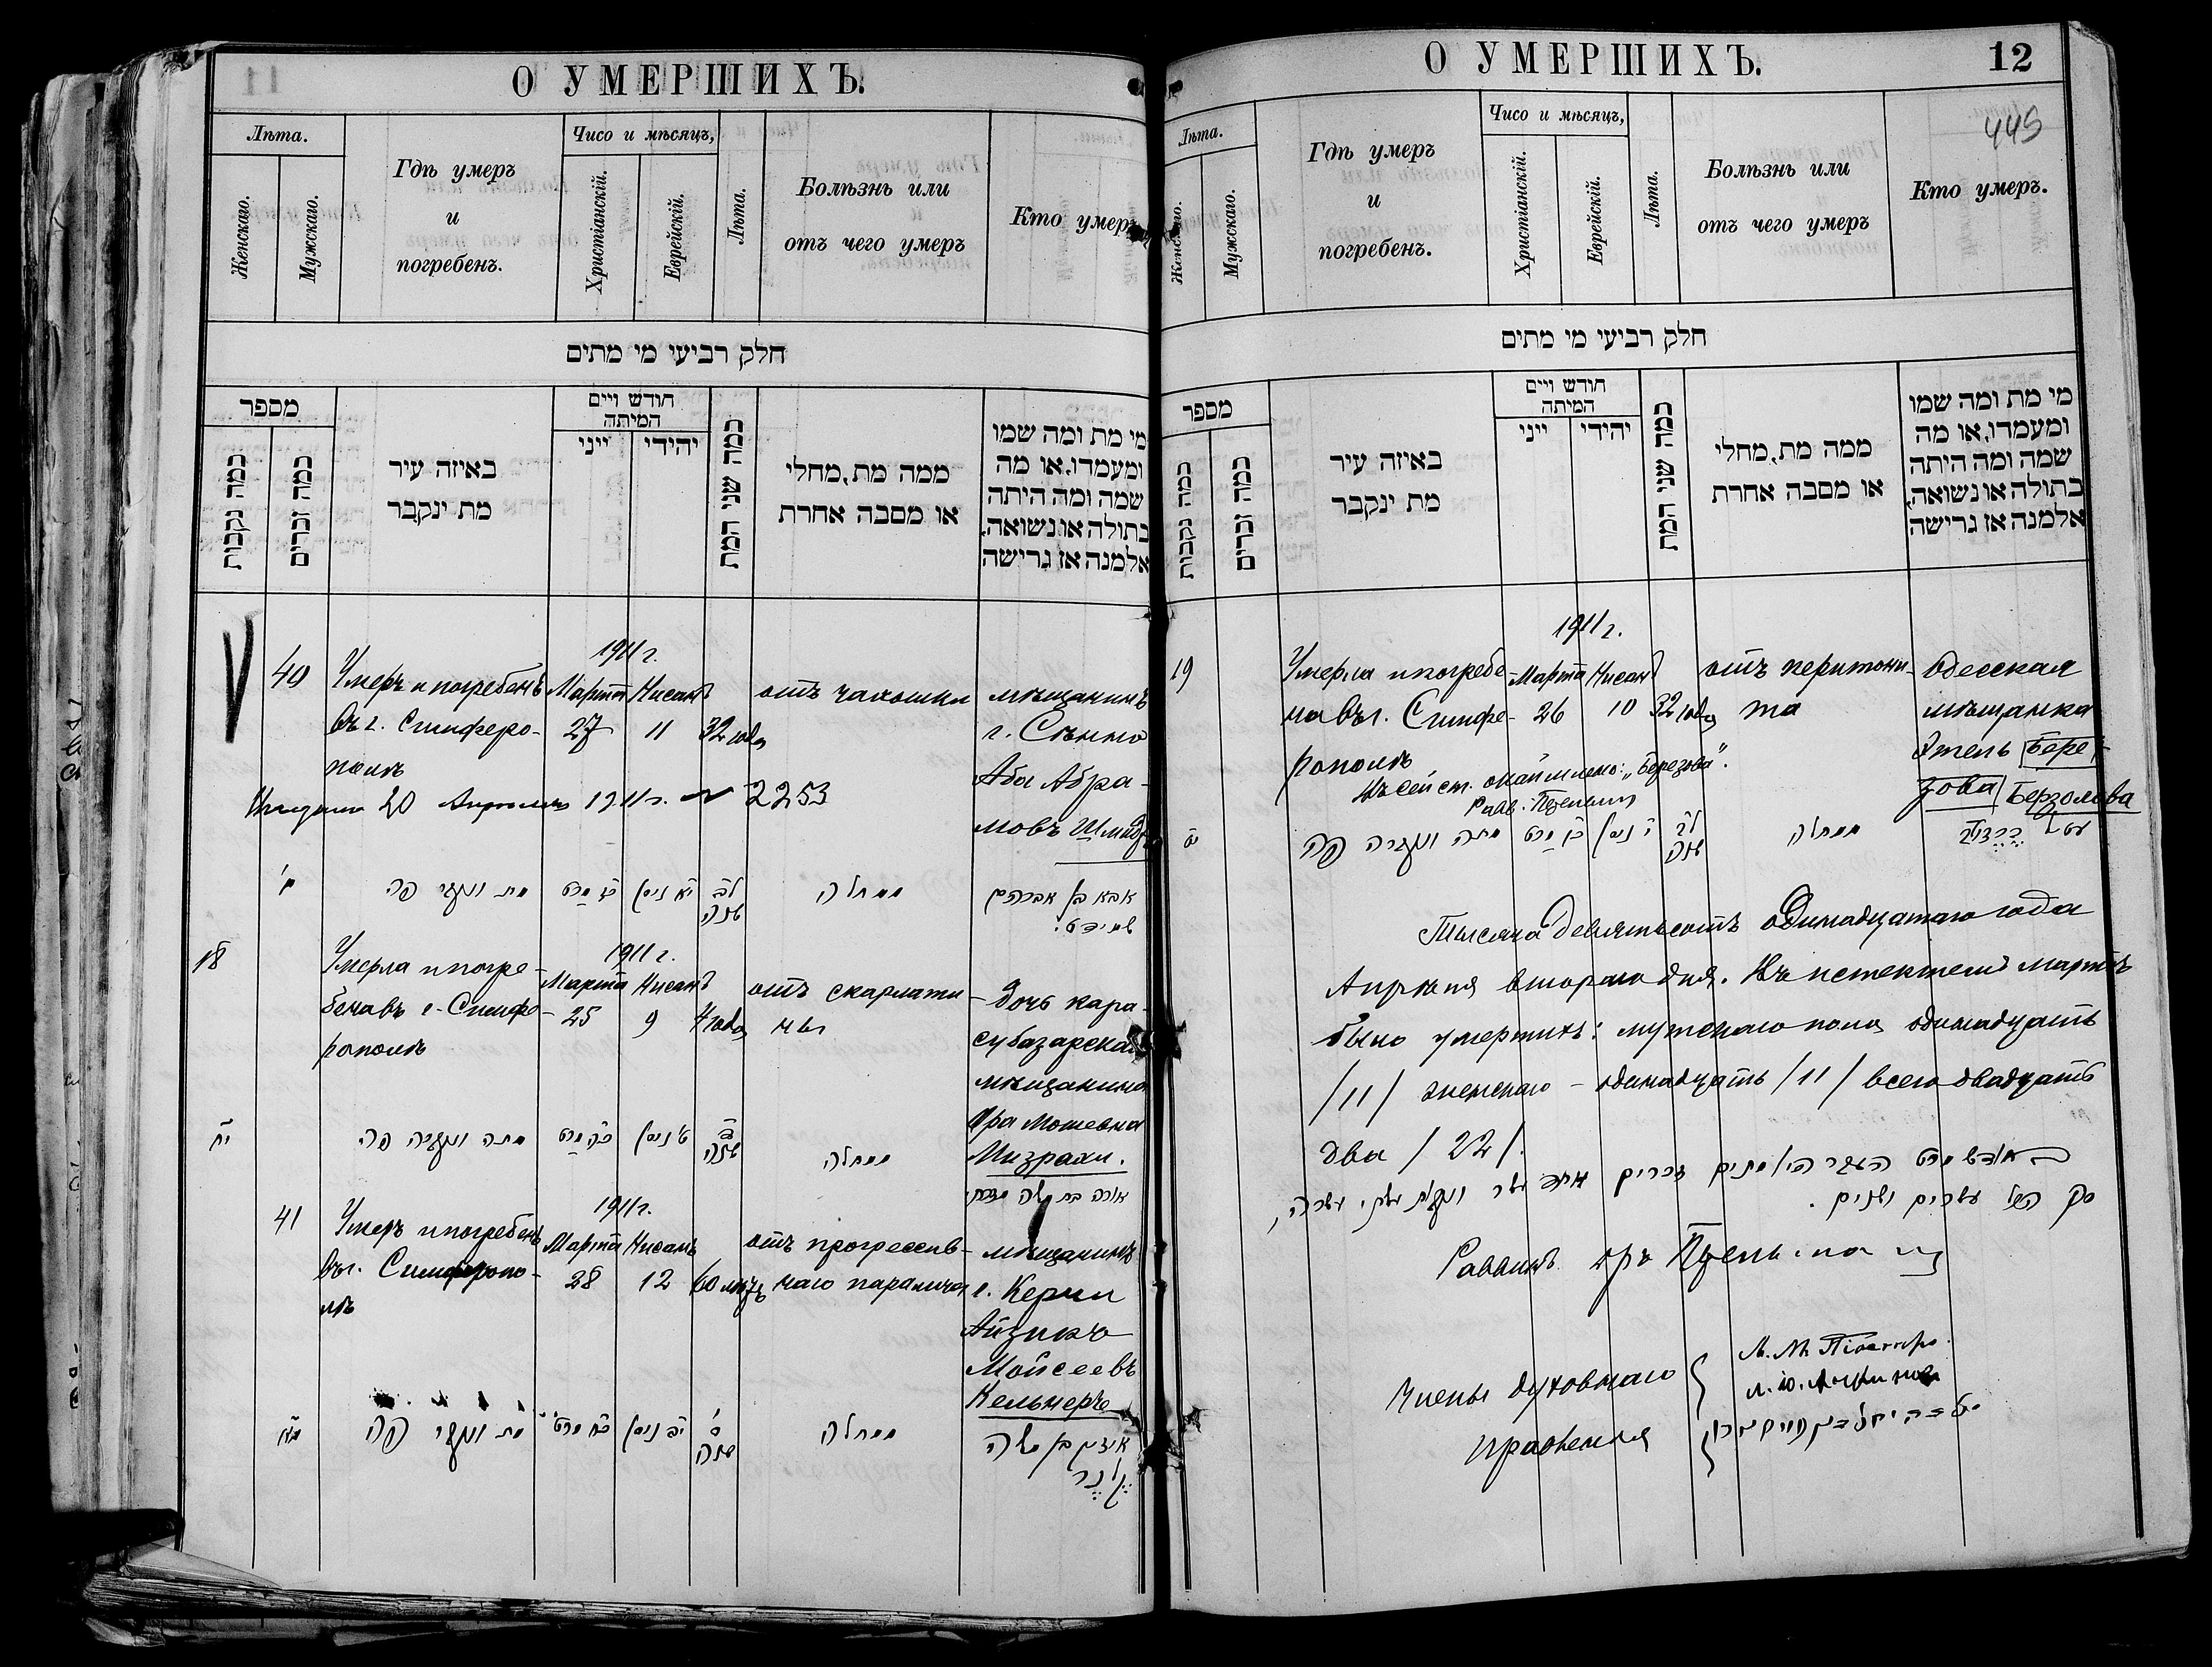 О УМЕРШИХЪ.
Лѣта.
Женскаго.
Мужскаго.
Гдѣ умеръ
и
погребенъ.
Чисо и мѣсяцъ,
Христіанскій.
Еврейскій.
Лѣта.
Болѣзнь или
отъ чего умеръ
Кто умеръ
חלק רביעי מי מתים
מספר
כמה נקבות
כמה זכרים
באיזה עיר
מת ינקבר
חודש ויים
המיתה
ייני
יהידי
כמה שני המת
ממה מת, מחלי
או מסבה אחרת
מי מת ומה שמו
ומעמדו, או מה
שמה ומה היתה
בתולה או נשואה,
אלמנה אז גרישה
40
Умеръ и погребенъ
въ г. Симферо-
полѣ
1911 г.
Марта Нисанъ
27 11 32 года
отъ чахотки
мѣщанинъ
г. Сѣнно
Аба Абра-
мовъ Шмидтъ
20 Апрѣля 1911 г. № 2253
מ'
מת ונקבר פה
כ"ז מרט
י"א ניסן
ל"ב
שנה
ממחלה
אבא בן אברהם
שמידט
18
Умерла и погре-
бена въ г. Симфе-
рополѣ
1911 г.
Марта Нисанъ
25 9 4 года
отъ скарлати-
ны
Дочь кара-
субазарскаго
мѣщанина
Ора Мошевна
Мизрахи.
י"ח
מתה ונקברה פה
כ"ה מרט
ט' ניסן
שנה
ממחלה
אורה בת משה מזרחי
41
Умеръ и погребенъ
въ г. Симферопо-
лѣ
1911 г.
Марта Нисанъ
28 12 60 лѣтъ
отъ прогрессив-
наго паралича
мѣщанинъ
г. Керчи
Айзикъ
Мойсеевъ
Кельнеръ
מ"א
מת ונקבר פה
כ"ח מרט
י"ב ניסן
ס'
שנה
ממחלה
אייזיק בן משה
קלנר
О УМЕРШИХЪ.
12
445
Лѣта.
Женскаго.
Мужскаго.
Гдѣ умеръ
и
погребенъ.
Чисо и мѣсяцъ,
Христіанскій.
Еврейскій.
Лѣта.
Болѣзнь или
отъ чего умеръ
Кто умеръ.
חלק רביעי מי מתים
מספר
כמה נקבות
כמה זכרים
באיזה עיר
מת ינקבר
חודש ויים
המיתה
ייני
יהידי
כמה שני המת
ממה מת, מחלי
או מסבה אחרת
מי מת ומה שמו
ומעמדו, או מה
שמה ומה היתה
בתולה או נשואה,
אלמנה אז גרישה
19
Умерла и погребе-
на въ г. Симфе-
рополѣ
1911 г.
Марта Нисанъ
26 10 32 года
отъ перитони-
та
Одесская
мѣщанка
Этель Бере-
зова Берзолова
Въ сей ст. окаймлено: „Березова".
Равв.
י"ט
מתה ונקברה פה
כ"ו מרט
י' ניסן
ל"ב
שנה
ממחלה
עטל
Тысяча девятьсотъ одинадцатаго года
Апрѣля второго дня. Въ истекшемъ мартѣ
было умершихъ: мужскаго пола одинадцать
/11/ женскаго – одинадцать /11/ всего двадцать
два /22/.
מרט העבר היו מתים זכרים עשר ונקבות עשרה,
סך הכל עשרים ושנים.
Раввинъ
Члены духовнаго
правленія